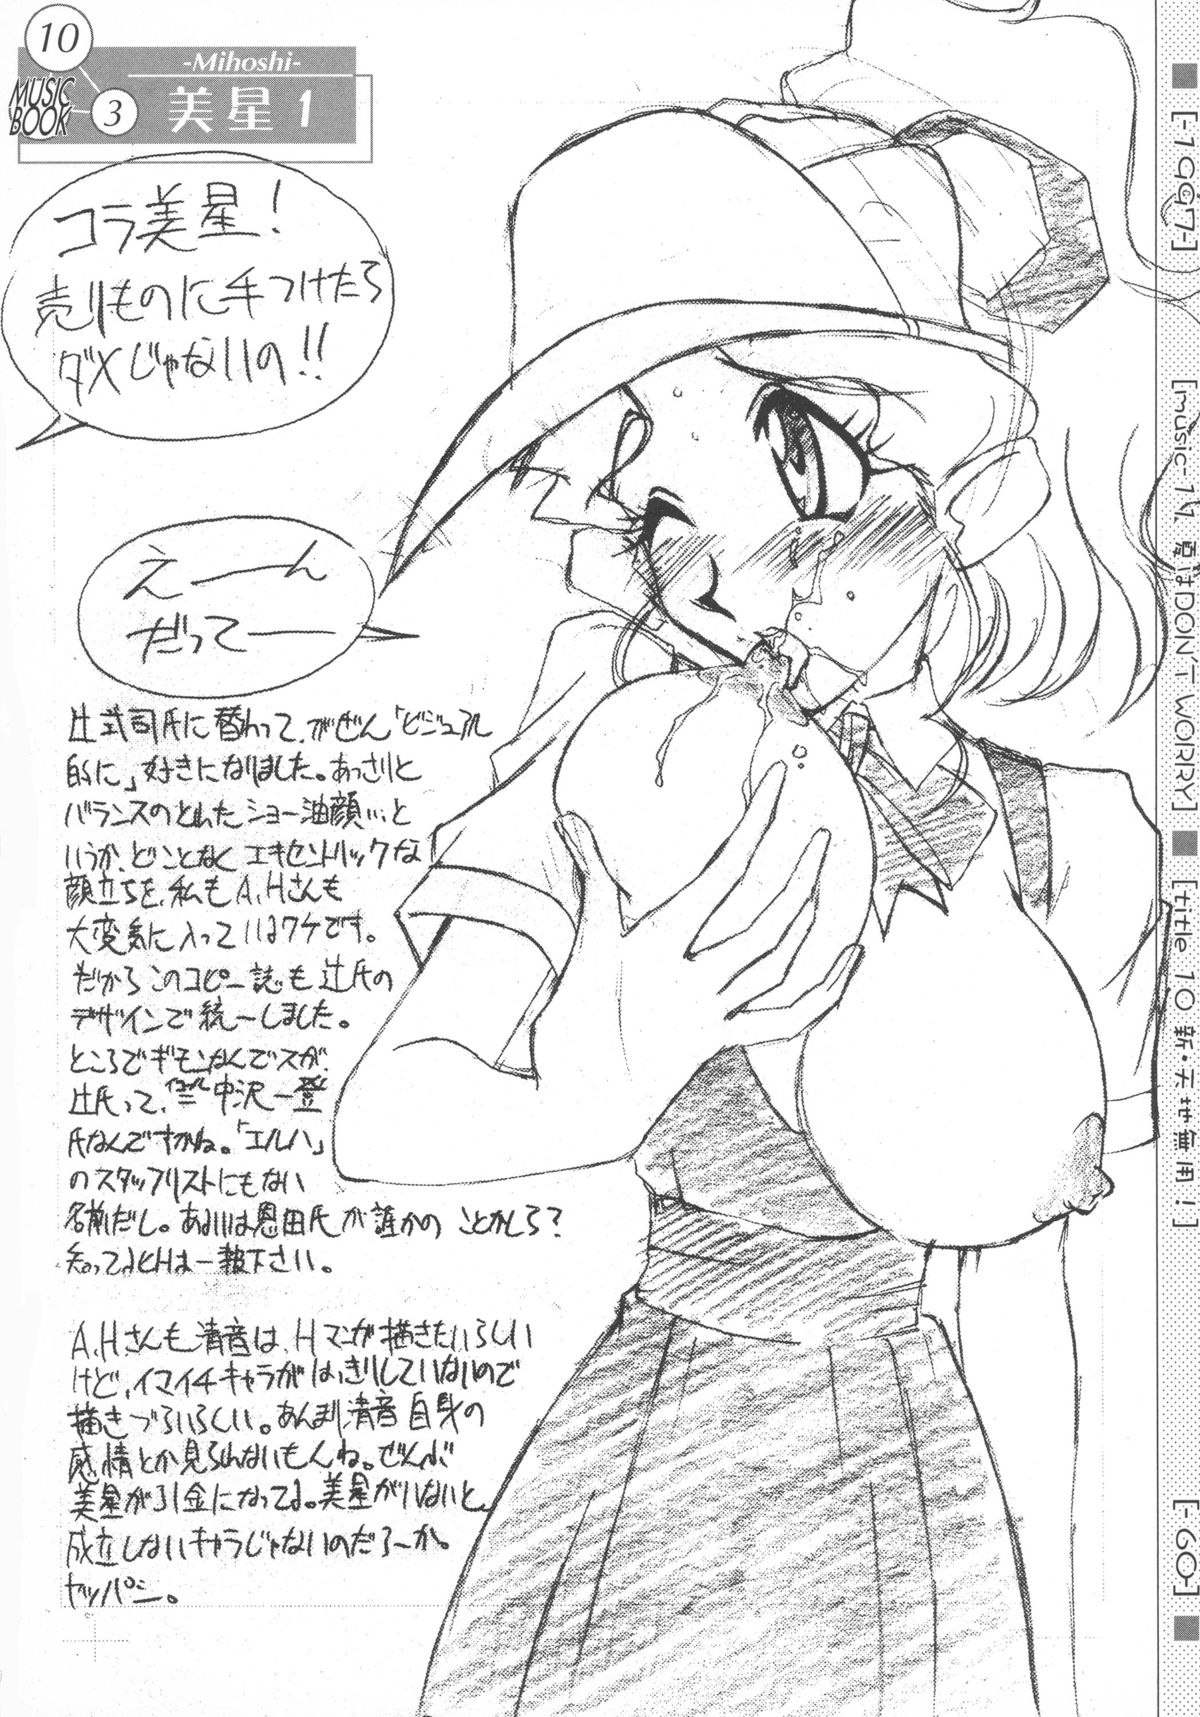 10
MUSIC BOOK
3
-Mihoshi-
美星 1
コラ美星!
売りものに手つけたら
ダメじゃないの!!
えーーん
だってー
辻武司氏に替わって、がぜん「ビジュアル
的に」好きになりました。あっさりと
バランスのとれたショー油顔…と
いうか、どことなくエキセントリックな
顔立ちを、私もA,Hさんも
大変気に入っているワケです。
だからこのコピー誌も辻氏の
デザインで統一しました。
ところでギモンなんでスが、
辻氏って、イコール中沢一登
氏なんですかね。「エルハ」
のスタッフリストにもない
名前だし。あるいは恩田氏か誰かのことかしら?
知ってる人は一報下さい。
A,Hさんも清音は、Hマンガ描きたいらしい
けど、イマイチキャラがはっきりしていないので
描きづらいらしい。あんまり清音自身の
感情とか見られないもんね。ぜんぶ
美星が引金になってる。美星がいないと、
成立しないキャラじゃないのだろーか。
ヤッパシ。
[-1997-]
[music-11、夏はDON'T WORRY]
[title 10 新・天地無用!]
[-60-]